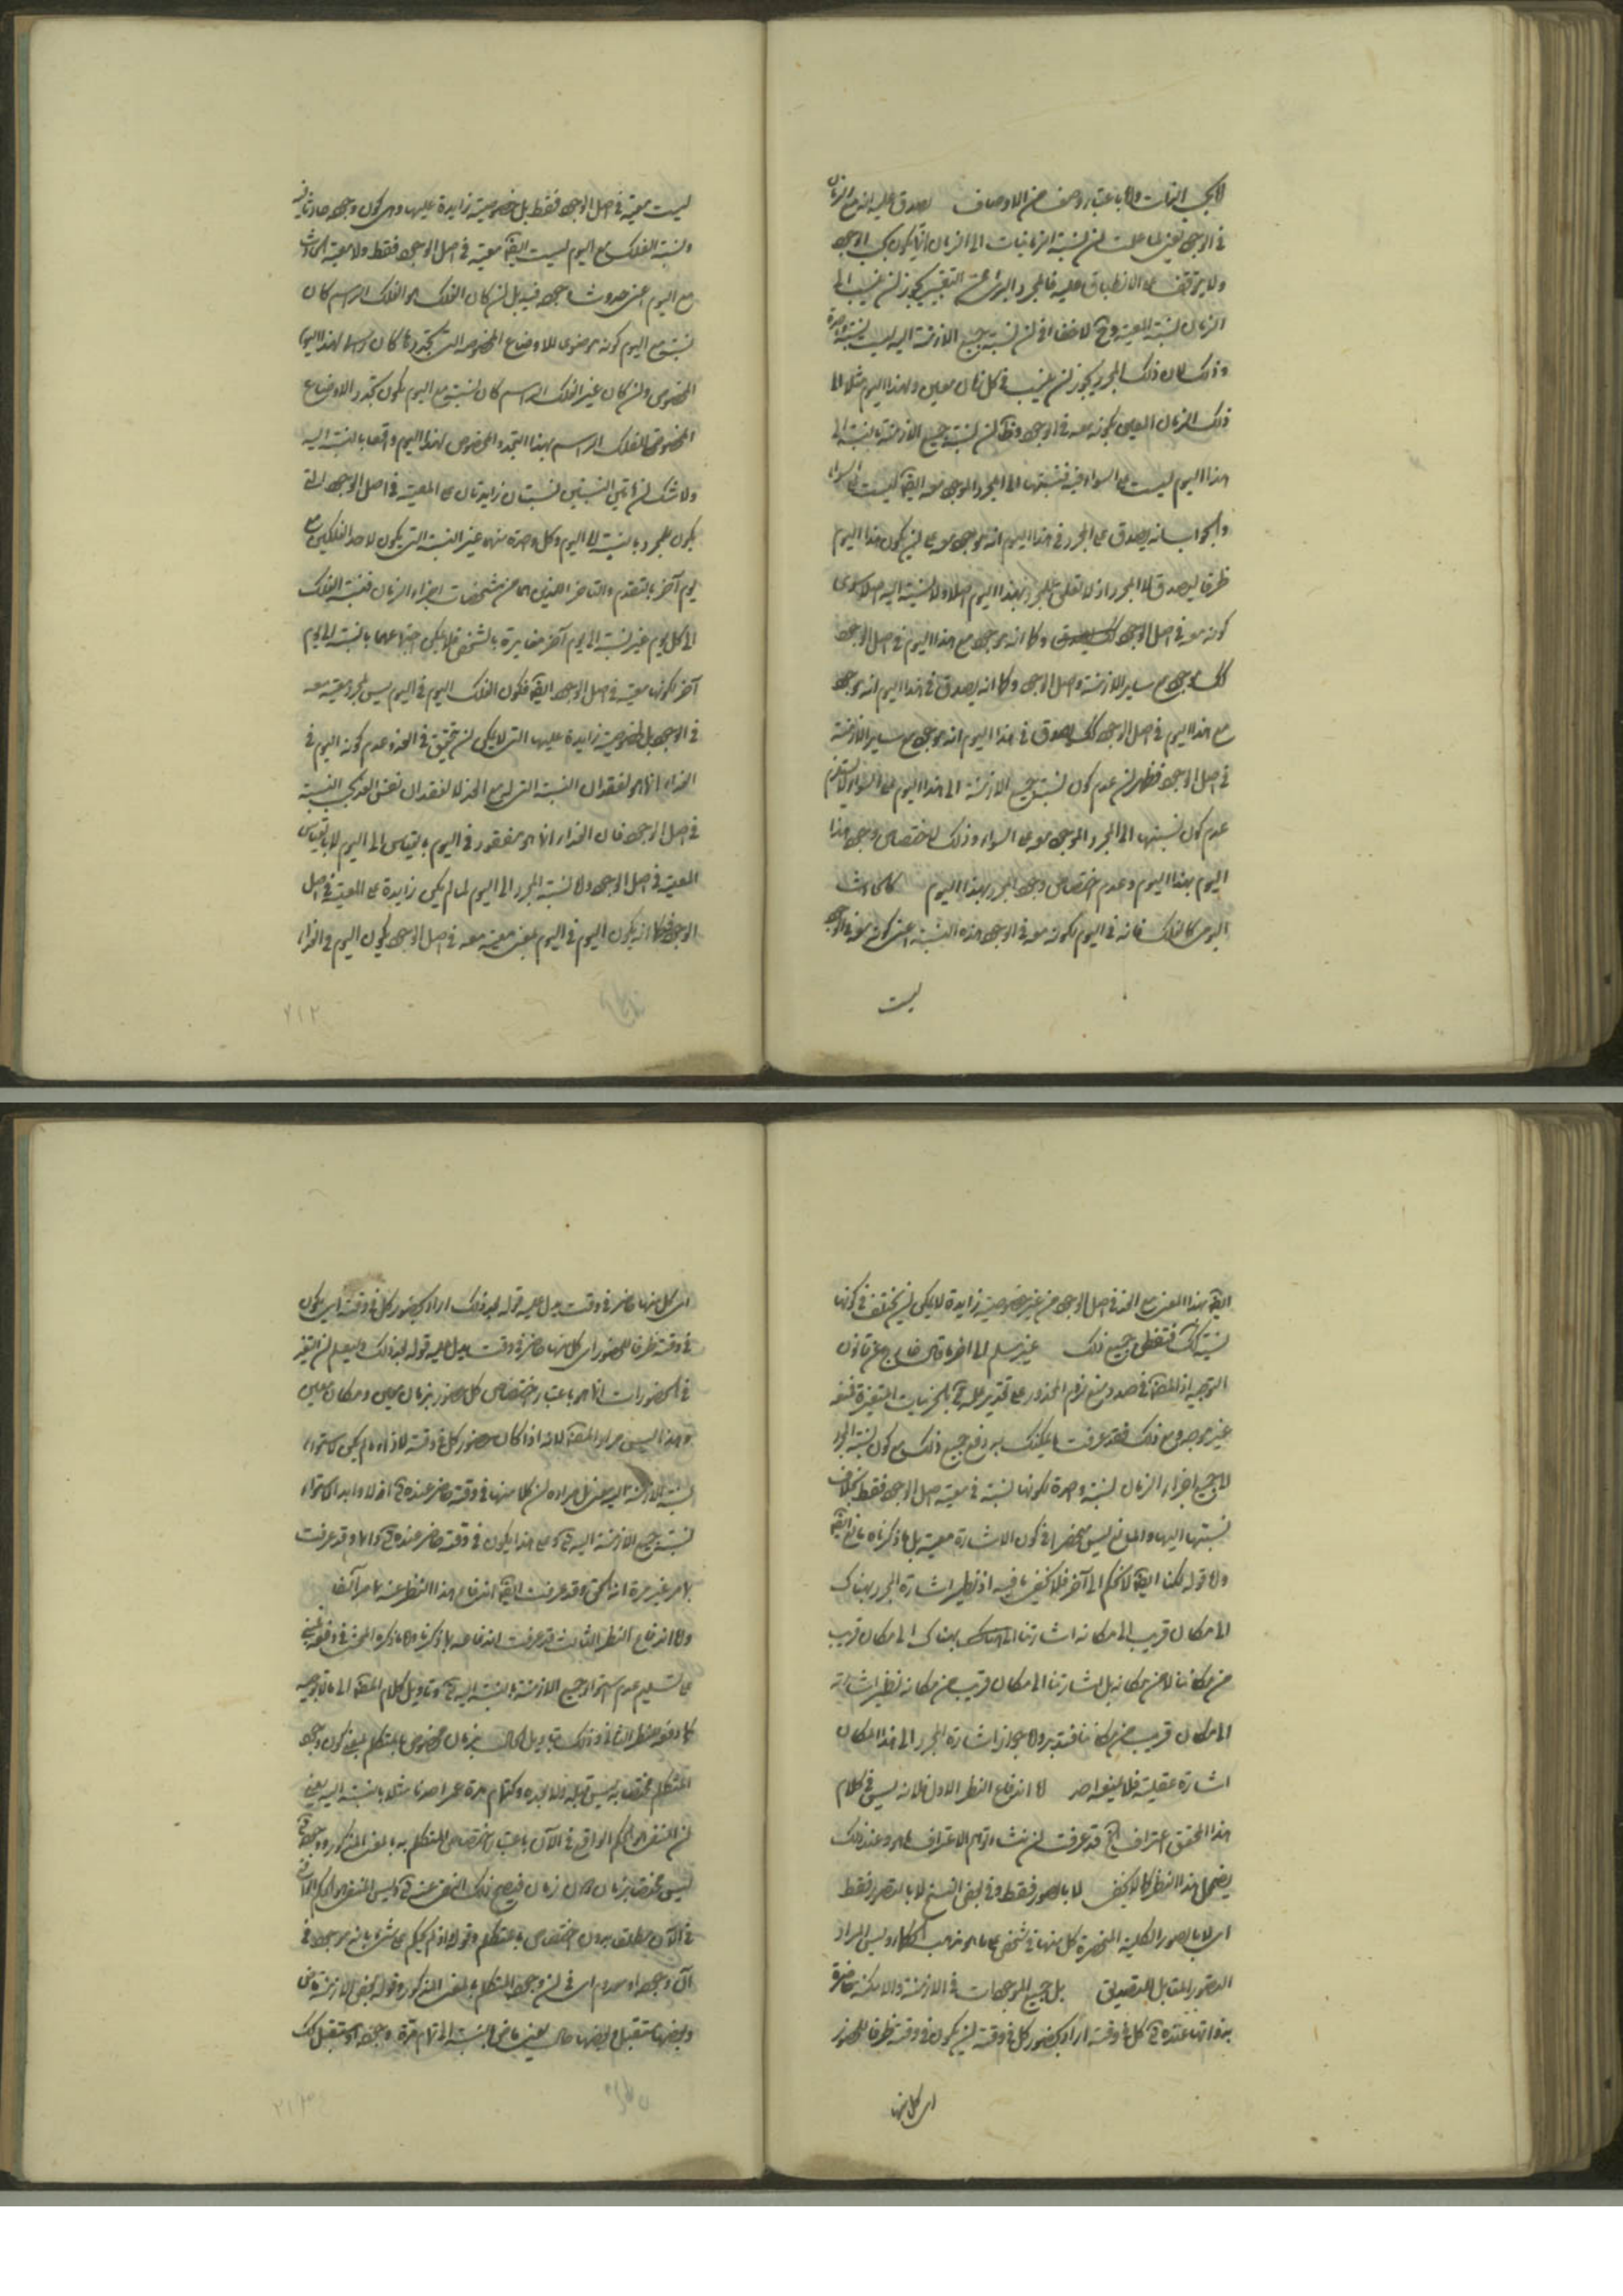 لا بحسب الذات ولا باعتبار وصف من الاوصاف يصدق عليه انه مع الزمان
في الوجود يعني لما علمت ان نسبة الزمانيات الى الزمان انما يكون بحسب الوجود
ولا يتوقف على الانطباق عليه فالمجرد البرئ عن التغير يجوز ان ينسب الى
الزمان نسبة المعية وح لا خفاء في ان نسبة جميع الازمنة اليه ليست نسبة واحدة
وذلك لان ذلك المجرد يجوز ان ينسب في كل زمان معين ولهذا اليوم مثلا الى
ذلك الزمان المعين بكونه معه في الوجود وظ ان نسبة جميع الازمنة بالنسبة الى
هذا اليوم ليست على السواء فيه فنسبتها الى المجرد الموجود معه ايضا ليست على السواء
والجواب انه يصدق على المجرد في هذا اليوم انه موجود معه على ان يكون هذا اليوم
ظرفا لصدق لا المجرد اذ لا تعلق للمجرد بهذا اليوم اصلا ولا نسبة اليه اصلا سوى
كونه معه في اصل الوجود وكما انه موجود مع هذا اليوم في اصل الوجود
كك موجود مع ساير الازمنة في اصل الوجود وكما انه يصدق في هذا اليوم انه موجود
مع هذا اليوم في اصل الوجود كك يصدق في هذا اليوم انه موجود مع ساير الازمنة
في اصل الوجود فظهر ان عدم كون نسبة جميع الازمنة الى هذا اليوم على السواء لا يستلزم
عدم كون نسبتها الى المجرد الموجود معه على السواء وذلك لاختصاص وجود هذا
اليوم بهذا اليوم وعدم اختصاص وجود المجرد بهذا اليوم كالحادث
اليومى كالفلك فانه في اليوم بكونه معه في الوجود هذه النسبة اعني كونه معه في الوجود
ليست
ليست معية في اصل الوجود فقط بل خصوصية زايدة عليها وهى كون وجوده حادثا فيه
ونسبة الفلك مع اليوم ليست ايضا معية في اصل الوجود فقط ولا معية الحادث
مع اليوم اعنى حدوث وجوده فيه بل ان كان الفلك هو الفلك الراسم كان
نسبته مع اليوم كونه موضوعا للاوضاع المخصوصة التى تجددها كان راسما لهذا اليوم
المخصوص وان كان غير الفلك الراسم كان نسبته مع اليوم بكون تجدد الاوضاع
المخصوصة للفلك الراسم بهذا التجدد المخصوص لهذا اليوم واقعا بالنسبة اليه
ولا شك ان هاتين النسبتين نسبتان زايدتان على المعية في اصل الوجود التى
يكون للمجرد بالنسبة الى اليوم وكل واحدة منهما غير النسبة التى يكون لاحد الفلكين مع
يوم آخر بالتقدم والتاخر اللذين هما من مشخصات اجزاء الزمان فنسبة الفلك
الى كل يوم غير نسبته الى يوم آخر مغايرة بالشخص فلا يمكن اجتماعهما بالنسبة الى يوم
آخر لكونها معية في اصل الوجود ايضا فكون الفلك اليوم في اليوم ليس لمجرد معية معه
في الوجود بل لخصوصية زايدة عليها التى لا يمكن ان تتحقق في الغد وعدم كونه اليوم في
الغد انما هو لفقدان النسبة التى له مع الغد لا لفقدان نفس الغد بحسب النسبة
في اصل الوجود فان الغد انما هو مفقود في اليوم بالقياس الى اليوم لا بالقياس
المعية في اصل الوجود ولا نسبة المجرد الى اليوم لما لم يكن زايدة على المعية في اصل
الوجود فكما انه يكون اليوم في اليوم بمعنى معيته معه في اصل الوجود يكون اليوم في الغد
٢١٢
ايضا بهذا المعنى مع الغد في اصل الوجود من غير خصوصية زايدة لا يمكن ان يختلف في كونها
نسبته فتفطن جميع ذلك غير مسلم الى آخر ما قال خارج عن قانون
التوجيه اذ المصنف في صدد منع لزوم المحذور على تقدير علمه تع بالجزئيات المتغيرة فمنعه
غير موجه ومع ذلك فقد عرفت ما يمكنك به دفع جميع ذلك مع كون نسبة المجرد
الى جميع اجزاء الزمان نسبة واحدة لكونها نسبة في معية اصل الوجود فقط بخلاف
نسبتها اليها والمانع ليس منحصرا في كون الاشارة معية بل ما ذكرناه مانع ايضا
واما قوله لكنا ايضا لا نحكم الى آخر فلا يخفى ما فيه اذ نظير اشارة المجرد بهناك
الى مكان قريب الى مكانه اشارتنا بهناك الى مكان قريب
من مكاننا لا من مكانه بل اشارتنا الى مكان قريب من مكانه نظير اشارته
الى مكان قريب من مكاننا فتدبر واما جواز اشارة المجرد الى هذا المكان
اشارة عقلية فلا ينفعه اصلا اما اندفاع النظر الاول فلانه ليس في كلام
هذا المحقق اعتراف الخ قد عرفت ان منشاء توهم الاعتراف ما هو وعند ذلك
يضمحل هذا النظر كما لا يخفى لا بالصور فقط وفي بعض النسخ لا بالتصور فقط
اى لا بالصور الكلية المنحصرة كل منها في شخص على ما هو مذهب الحكماء وليس المراد
التصور المقابل للتصديق بل جميع الموجودات في الازمنة والامكنة حاضرة
بذواتها عنده تع كل في وقته اراد بحضور كل في وقته ان يكون في وقته ظرفا للحضور
اى كل منها
اى كل منها حاضر في وقت يدل عليه قوله بعد ذلك اراد بحضور كل في وقته ان يكون
في وقته ظرفا للحضور اى كل منها حاضر في وقت يدل عليه قوله بعد ذلك وليعلم ان التغير
في الحضورات انما هو باعتبار اختصاص كل حضور بزمان معين ومكان معين
وهذا ليس مراد المصنف لانه اذا كان حضور كل في وقته لازما لم يكن لاستواء
نسبة الازمنة اليه معنى بل مراده ان كلا منها في وقته حاضر عنده تع ازلا وابدا لاستواء
نسبة جميع الازمنة اليه تع ومع هذا يكون في وقته حاضر عنده تع دائما وقد عرفت
بما مر غير مرة انه الحق وقد عرفت ايضا اندفاع هذا النظر عنه بما مر آنفا
واما اندفاع النظر الثالث قد عرفت اندفاعه بما ذكرنا واما ما ذكره المحشى في دفعه فمبنى
على تسليم عدم استواء جميع الازمنة بالنسبة اليه تع وتاويل كلام المصنف الى ما لا توجيه
كما دفع النظر الثاني وذلك بتاويل الحال بزمان مخصوص بالمتكلم يعنى كون وجود
المتكلم مختصا به ليس قبله ولا بعده وكتمام مدة عمر احدنا مثلا بالنسبة اليه يعنى
ان المنفى هو الحكم الواقع في الآن باعتبار اختصاص المتكلم به بالمعنى المذكور ووجوده تع
ليس مختصا بزمان دون زمان فيصح ذلك النفى عنه تع وليس المنفى هو الحكم الواقع
في الآن مطلقا بدون اختصاص بالمتكلم وقوله اذ لم يحكم على شيء بانه موجود في
آن وجوده او معدوم اى في ان وجود المتكلم بالمعنى المذكور وقوله بعض الازمنة ماض
وبعضها مستقبل وبعضها حال يعنى ماض بالنسبة الى تمام مدة وجوده او مستقبل كك
٢١٣